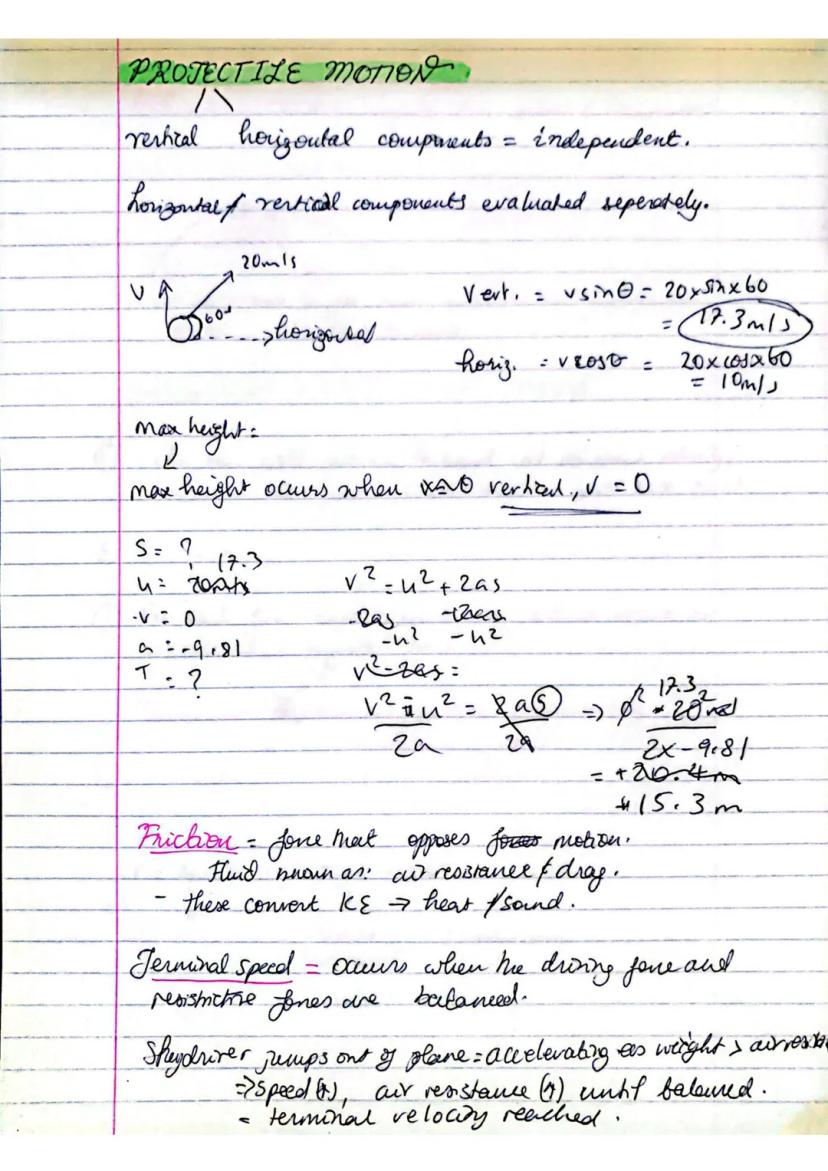 PROJECTILE MOTION
vertical horizontal components = independent.
horizontal / vertical components evaluated seperately.
20m/s
V
60°
horizontal
Vert. = vsinθ = 20×sin×60
= 17.3m/s
horiz. = vcosθ = 20×cos×60
= 10m/s
max height:
max height occurs when vertical, v = 0
S = ?
17.3
u =
v = 0
a = -9.81
T = ?
v² = u² + 2as
-2as
-u² -u²
v²-2as =
v² - u² = 2as
2a 2a
=> 0² - 17.3²
2×-9.81
= +20.4m
15.3m
Friction = force that opposes forces motion.
Fluid known as: air resistance & drag.
- these convert KE → heat / sound.
Terminal speed = occurs when the driving force and
resistrictive forces are balanced.
Skydriver jumps out of plane = accelerating as weight > air
=> speed (↑), air resistance (↑) until balanced.
= terminal velocity reached.